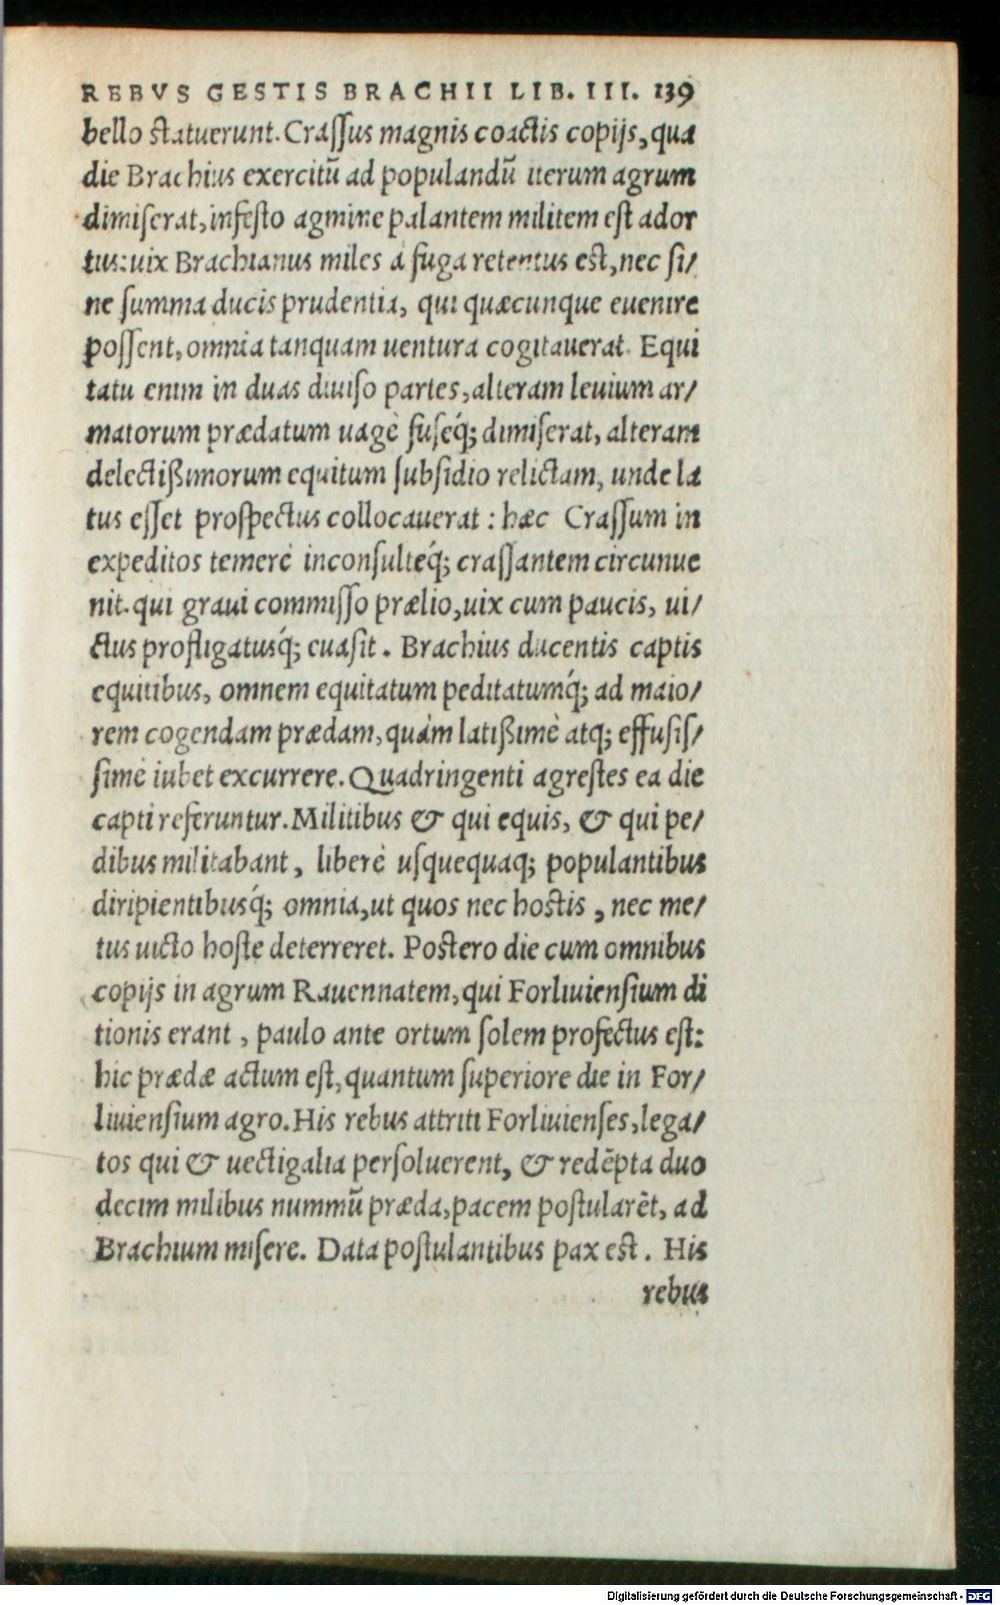 REBVS GESTIS BRACHII LIB. III. 139
bello statuerunt. Crassus magnis coactis copijs, qua
die Brachius exercitū ad populandū iterum agrum
dimiserat, infesto agmine palantem militem est ador
tus: uix Brachianus miles à fuga retentus est, nec si/
ne summa ducis prudentia, qui quæcunque euenire
possent, omnia tanquam uentura cogitauerat. Equi
tatu enim in duas diuiso partes, alteram leuium ar/
matorum prædatum uagè fuseq́; dimiserat, alteram
delectißimorum equitum subsidio relictam, unde la
tus esset prospectus collocauerat : hæc Crassum in
expeditos temerè inconsulteq́; crassantem circunue
nit. qui graui commisso prælio, uix cum paucis, ui/
ctus profligatusq́; euasit. Brachius ducentis captis
equitibus, omnem equitatum peditatumq́; ad maio/
rem cogendam prædam, quàm latißimè atq; effusis/
simè iubet excurrere. Quadringenti agrestes ea die
capti referuntur. Militibus & qui equis, & qui pe/
dibus militabant, liberè usquequaq; populantibus
diripientibusq́; omnia, ut quos nec hostis, nec me/
tus uicto hoste deterreret. Postero die cum omnibus
copijs in agrum Rauennatem, qui Forliuiensium di
tionis erant, paulo ante ortum solem profectus est:
hic prædæ actum est, quantum superiore die in For/
liuiensium agro. His rebus attriti Forliuienses, lega/
tos qui & uectigalia persoluerent, & redēpta duo
decim milibus nummū præda, pacem postularēt, ad
Brachium misere. Data postulantibus pax est. His
rebus
Digitalisierung gefördert durch die Deutsche Forschungsgemeinschaft - DFG